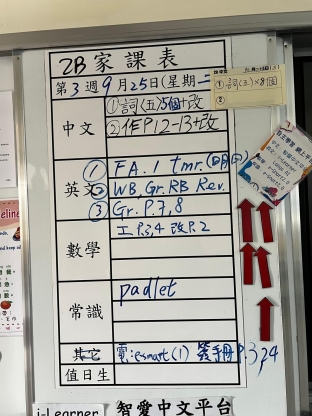 2B 家課表
第 3 週 9 月 25 日 (星期 二
中文
①詞(五)5個+改
②作P.12-13+改
①詞(五)×8個
②
英文
① F.A. 1 tmr.
② WB, Gr. RB Rev.
③ Gr. P.7, 8
數學
工P.3,4 改P.2
常識
padlet
其它
電:esmart(1) 簽手冊P.3 p4
值日生
i-Learner 智愛中文平台